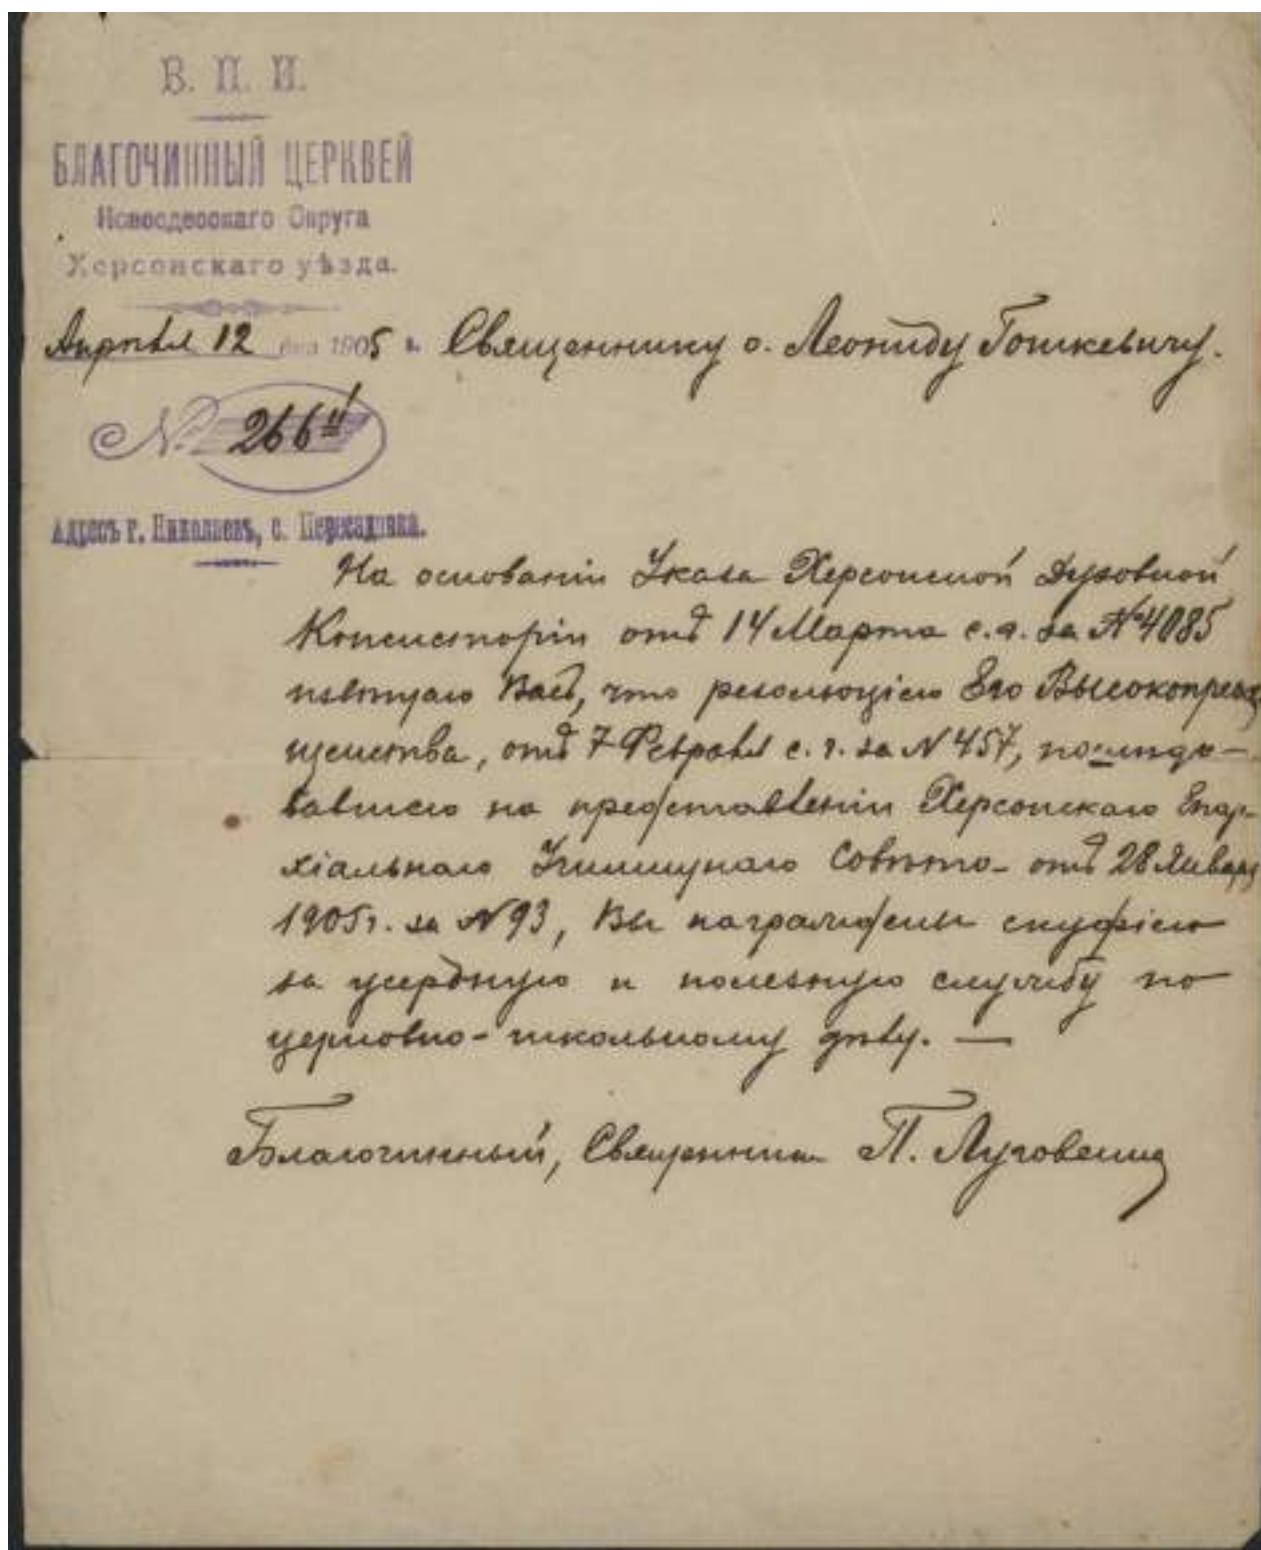 В. П. И.
БЛАГОЧИННЫЙ ЦЕРКВЕЙ
Новоодесскаго Округа
Херсонскаго уѣзда.
Апрѣля 12 дня 1905 г.
Священнику о. Леониду Гошкевичу.
№ 266
Адресъ г. Николаевъ, с. Пересадовка.
На основаніи Указа Херсонской Духовной
Консисторіи отъ 14 Марта с. г. за № 4085
извѣщаю Васъ, что резолюціею Его Высокопреосвя
щенства, отъ 7 Февраля с. г. за № 457, послѣдо-
вавшею на представленіи Херсонскаго Епар-
хіальнаго Училищнаго Совѣта отъ 28 Января
1905 г. за № 93, Вы награждены скуфіею
за усердную и полезную службу по
церковно-школьному дѣлу. —
Благочинный, Священникъ П.